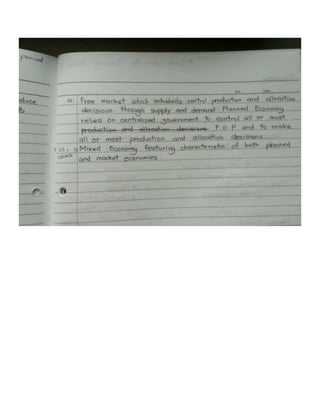 period
a) Free market which individuals control production and allocation
decisions through supply and demand. Planned Economy
relies on centralized government to control all or most
production and allocation decisions F.O.P and to make
all or most production and allocation decisions.
Mixed Economy featuring characteristic of both planned
and market economies.